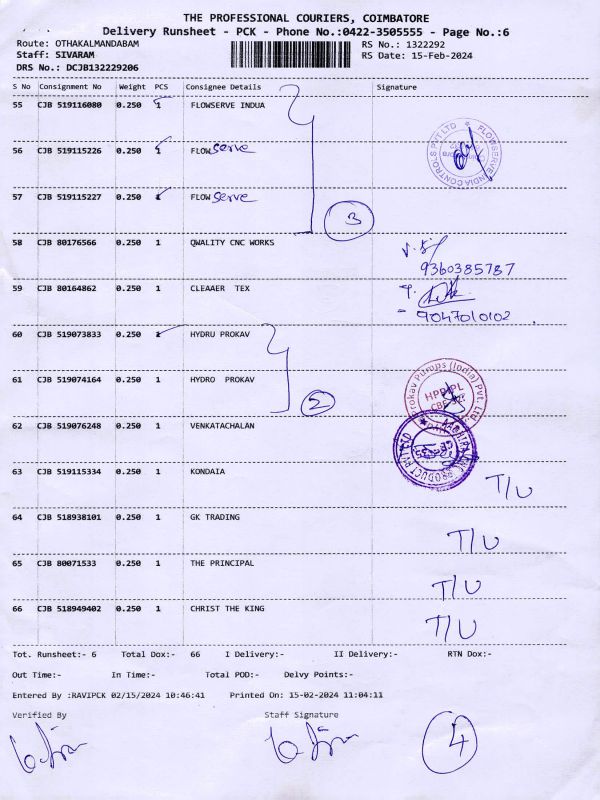 THE PROFESSIONAL COURIERS, COIMBATORE
Delivery Runsheet - PCK - Phone No.:0422-3505555 - Page No.:6
Route: OTHAKALMANDABAM RS No.: 1322292
Staff: SIVARAM RS Date: 15-Feb-2024
DRS No.: DCJB132229206
S No Consignment No Weight PCS Consignee Details Signature
55 CJB 519116080 0.250 1 FLOWSERVE INDUA
56 CJB 519115226 0.250 1 FLOWserve
57 CJB 519115227 0.250 1 FLOWserve
3
58 CJB 80176566 0.250 1 QWALITY CNC WORKS
9360385787
59 CJB 80164862 0.250 1 CLEAAER TEX
9047010102
60 CJB 519073833 0.250 1 HYDRU PROKAV
61 CJB 519074164 0.250 1 HYDRO PROKAV
2
62 CJB 519076248 0.250 1 VENKATACHALAN
63 CJB 519115334 0.250 1 KONDAIA
T/U
64 CJB 518938101 0.250 1 GK TRADING
T/U
65 CJB 80071533 0.250 1 THE PRINCIPAL
T/U
66 CJB 518949402 0.250 1 CHRIST THE KING
T/U
Tot. Runsheet:- 6 Total Dox:- 66 I Delivery:- II Delivery:- RTN Dox:-
Out Time:- In Time:- Total POD:- Delvy Points:-
Entered By :RAVIPCK 02/15/2024 10:46:41 Printed On: 15-02-2024 11:04:11
Verified By Staff Signature
4